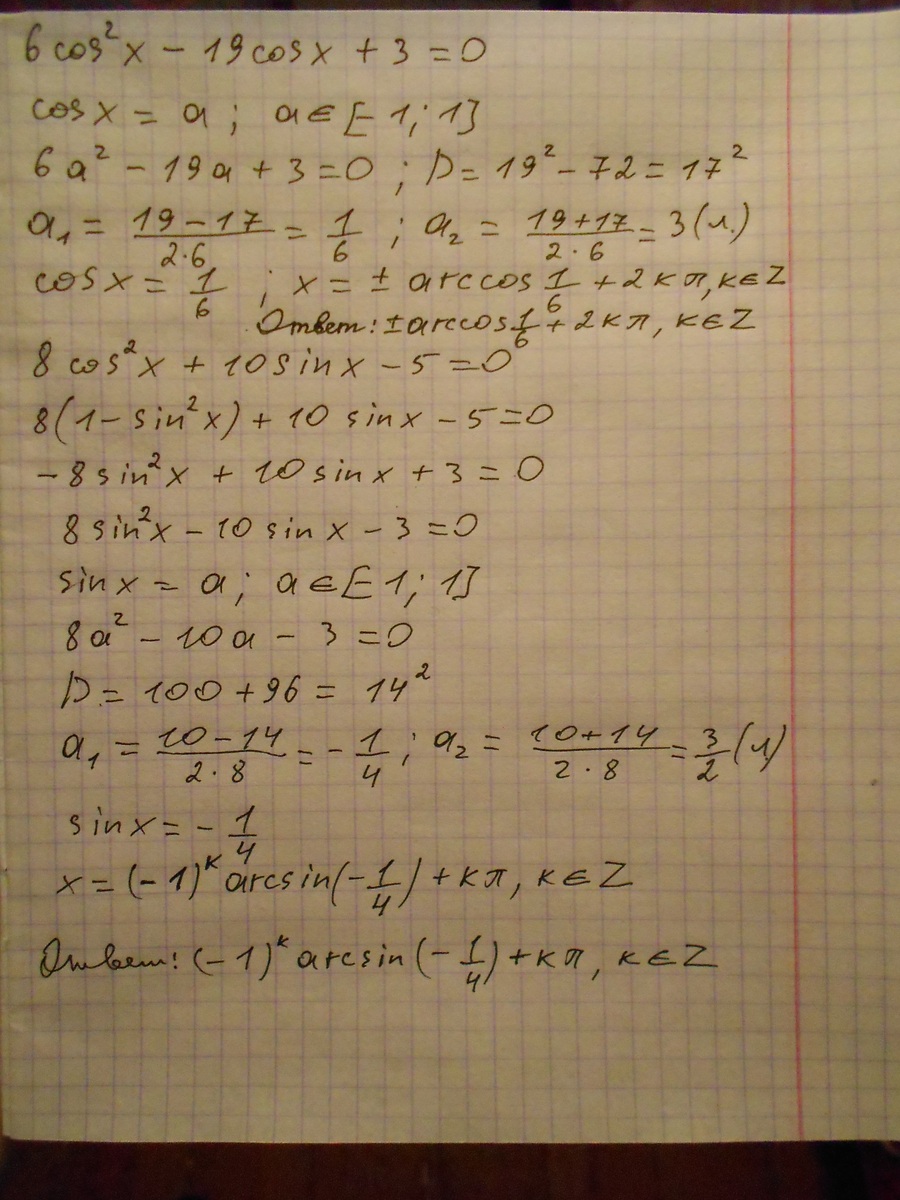 6 cos²x − 19 cos x + 3 = 0
cos x = a ; a ∈ [−1; 1]
6a² − 19a + 3 = 0 ; D = 19² − 72 = 17²
a₁ = (19 − 17)/(2·6) = 1/6 ; a₂ = (19 + 17)/(2·6) = 3 (л.)
cos x = 1/6 ; x = ± arccos 1/6 + 2кπ, к ∈ Z
Ответ: ± arccos 1/6 + 2кπ, к ∈ Z
8 cos²x + 10 sin x − 5 = 0
8(1 − sin²x) + 10 sin x − 5 = 0
−8 sin²x + 10 sin x + 3 = 0
8 sin²x − 10 sin x − 3 = 0
sin x = a ; a ∈ [−1; 1]
8a² − 10a − 3 = 0
D = 100 + 96 = 14²
a₁ = (10 − 14)/(2·8) = −1/4 ; a₂ = (10 + 14)/(2·8) = 3/2 (л)
sin x = −1/4
x = (−1)ᵏ arcsin(−1/4) + кπ, к ∈ Z
Ответ: (−1)ᵏ arcsin(−1/4) + кπ, к ∈ Z